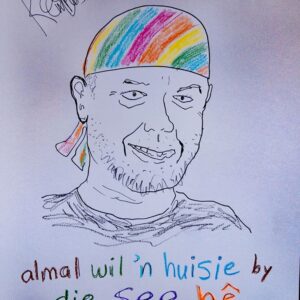 almal wil 'n huisie by
die see hê